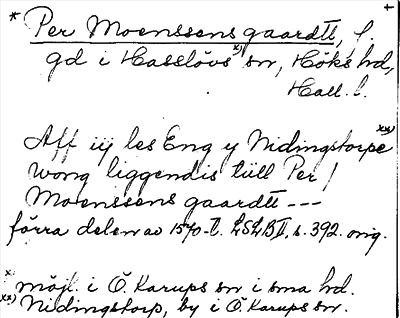 * Per Moenssens gaardtt, f.
gd i Hasslövs x) sn, Höks hd,
Hall. l.
Aff iij les Eng y Nidingstorpe xx)
wong liggendis tüll Per /
Moenssens gaardtt ---
förra delen av 1570-t. LSLB II, s. 392. orig.
x) möjl. i Ö. Karups sn i sma hd.
xx) Nidingstorp, by i Ö. Karups sn.